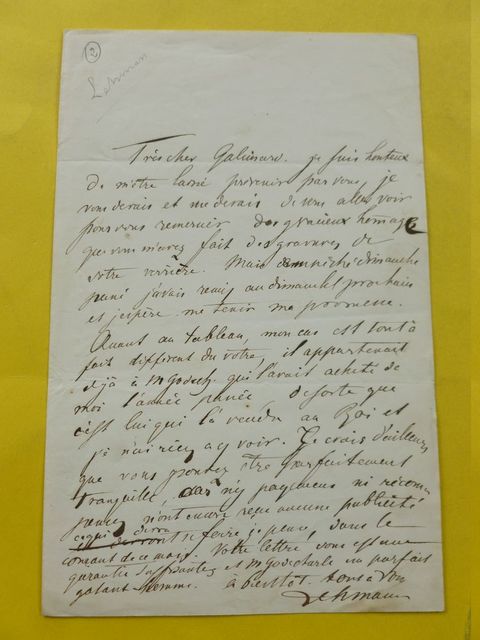 2
Lehmann
Très cher Galimard. je suis honteux
de m'être laissé prévenir par vous, je
vous devais et me devais de vous aller voir
pour vous remercier des gracieux hommage
que vous m'avez fait des gravures de
votre verrière. Mais empêché dimanche
passé j'avais remis au dimanche prochain
et j'espère me tenir ma promesse.
Quant au tableau, mon cas est tout à
fait different du votre, il appartenait
déjà à M Godech. qui l'avait acheté de
moi l'année passée, desorte que
c'est lui qui l'a vendu au Roi et
je n'ai rien a y voir. Je crois d'ailleurs
que vous pouvez être parfaitement
tranquille, car n'y payemens ni récom
penses n'ont encore reçu aucune publicité
ce qui devra
se ferire je pense, dans le
courant de ce mois. Votre lettre vous est une
garantie suffisante et M Godecharle un parfait
galant homme. à bientôt. tout à vous
Lehmann